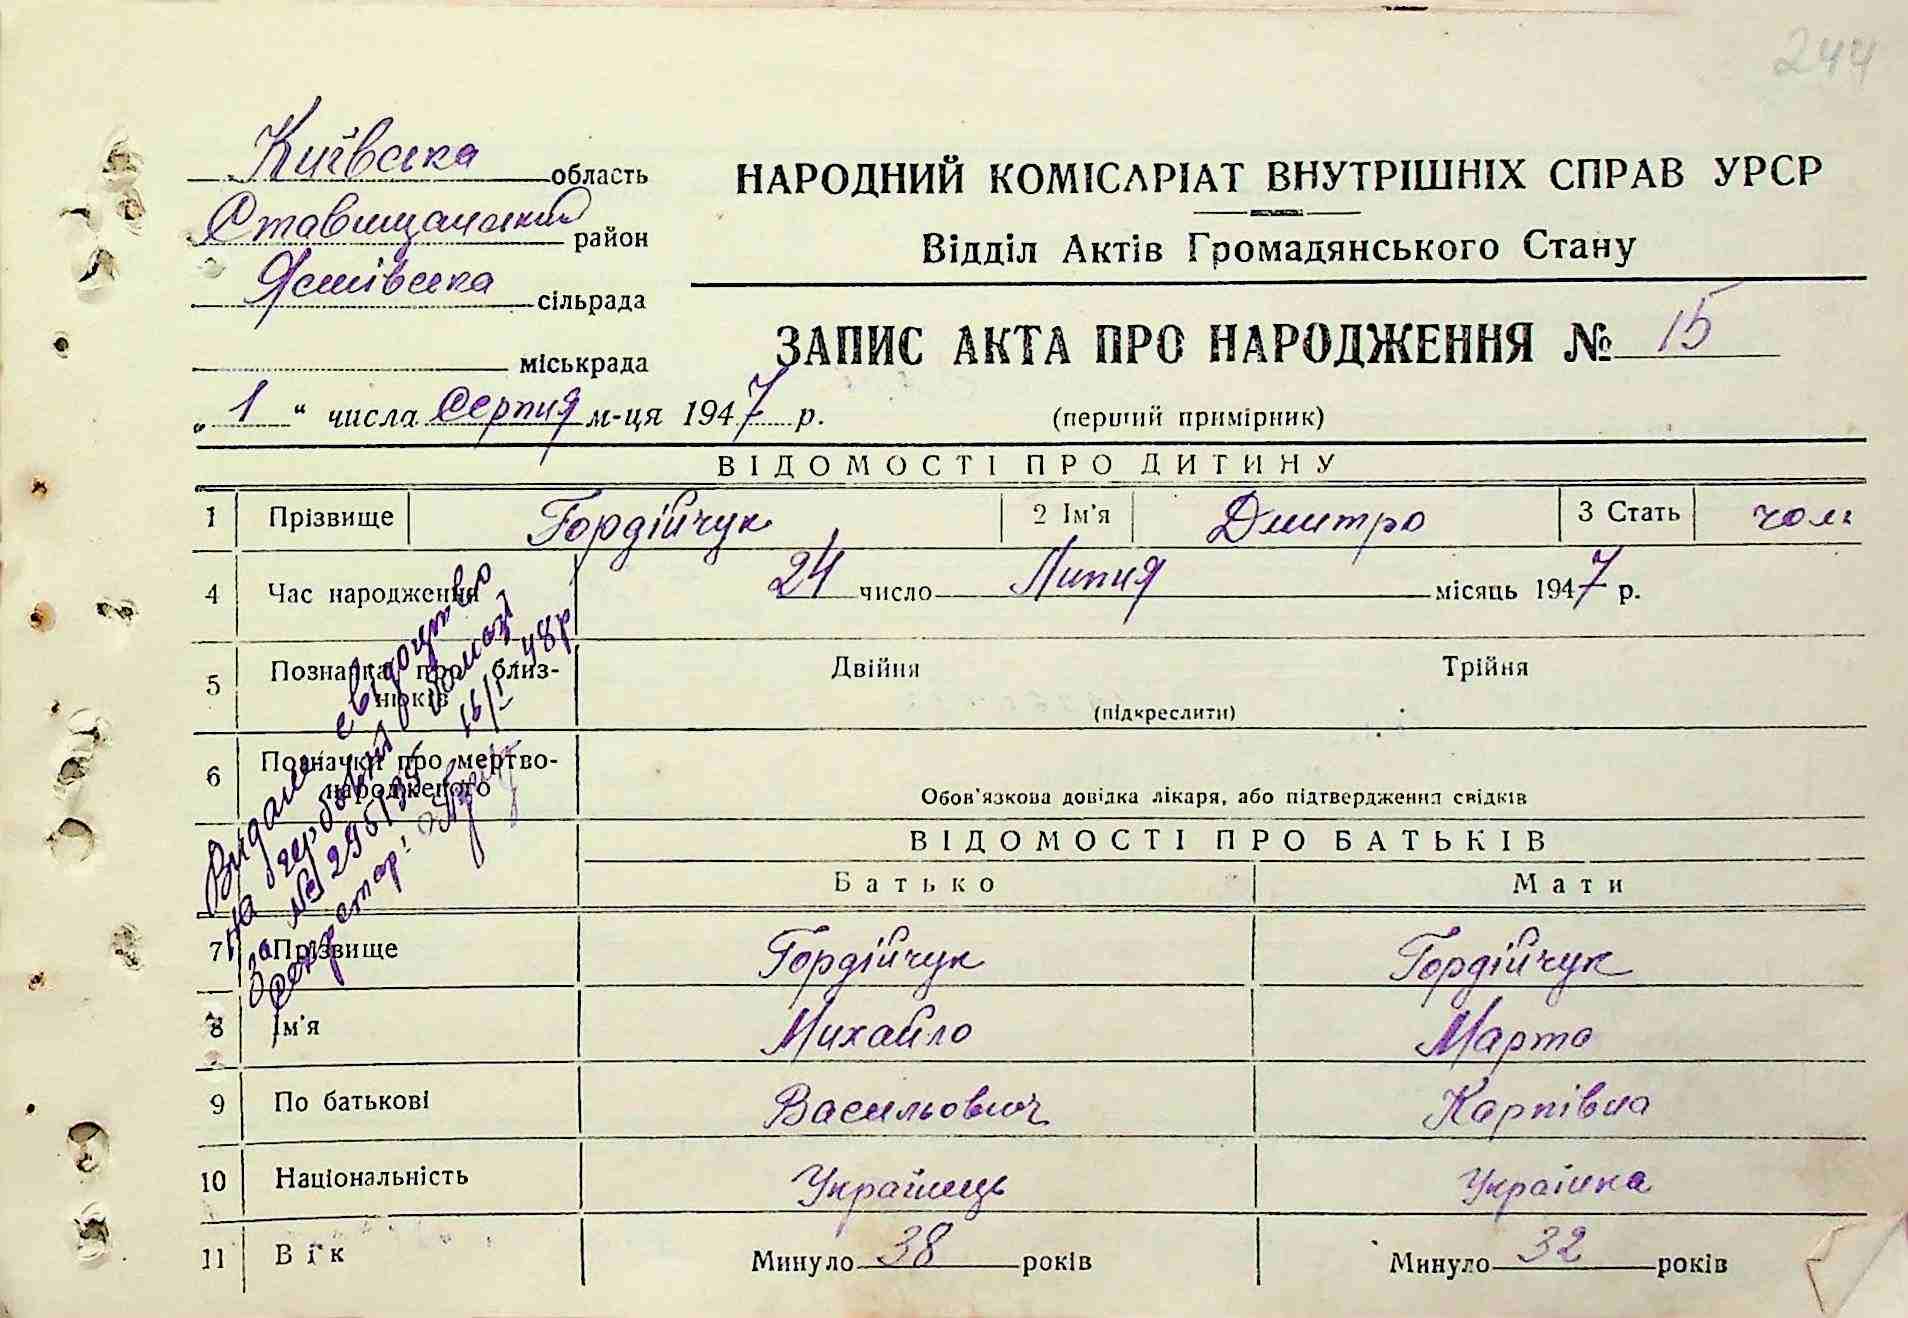 244
Київська область
Ставищанський район
Яснівська сільрада
міськрада
„ 1 “ числа Серпня м-ця 1947 р.
НАРОДНИЙ КОМІСАРІАТ ВНУТРІШНІХ СПРАВ УРСР
Відділ Актів Громадянського Стану
ЗАПИС АКТА ПРО НАРОДЖЕННЯ № 15
(перший примірник)
ВІДОМОСТІ ПРО ДИТИНУ
1 Прізвище Гордійчук 2 Ім'я Дмитро 3 Стать чол.
4 Час народження 24 число Липня місяць 1947 р.
5 Позначка про близнюків Двійня Трійня
(підкреслити)
6 Позначки про мертвонародженого
Обов'язкова довідка лікаря, або підтвердження свідків
Видали свідоцтво
на гербовій бомазі
за № 295135 16/I 48р
секретар:
ВІДОМОСТІ ПРО БАТЬКІВ
Батько Мати
7 Прізвище Гордійчук Гордійчук
8 Ім'я Михайло Марта
9 По батькові Васильович Карпівна
10 Національність Українець Українка
11 Вік Минуло 38 років Минуло 32 років